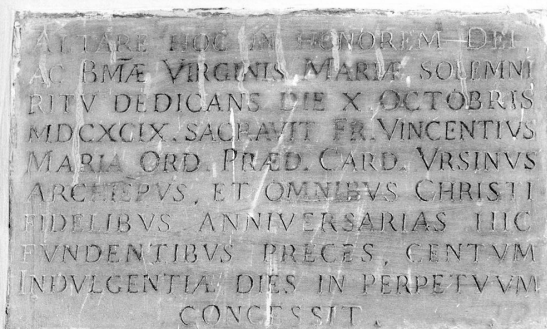 ALTARE HOC IN HONOREM DEI,
AC BMÆ VIRGINIS MARIÆ SOLEMNI
RITV DEDICANS DIE X OCTOBRIS
MDCXCIX. SACRAVIT FR. VINCENTIVS
MARIA ORD. PRÆD. CARD. VRSINVS
ARCHIEPVS, ET OMNIBVS CHRISTI
FIDELIBVS ANNIVERSARIAS HIC
FVNDENTIBVS PRECES, CENTVM
INDVLGENTIÆ DIES IN PERPETVVM
CONCESSIT.